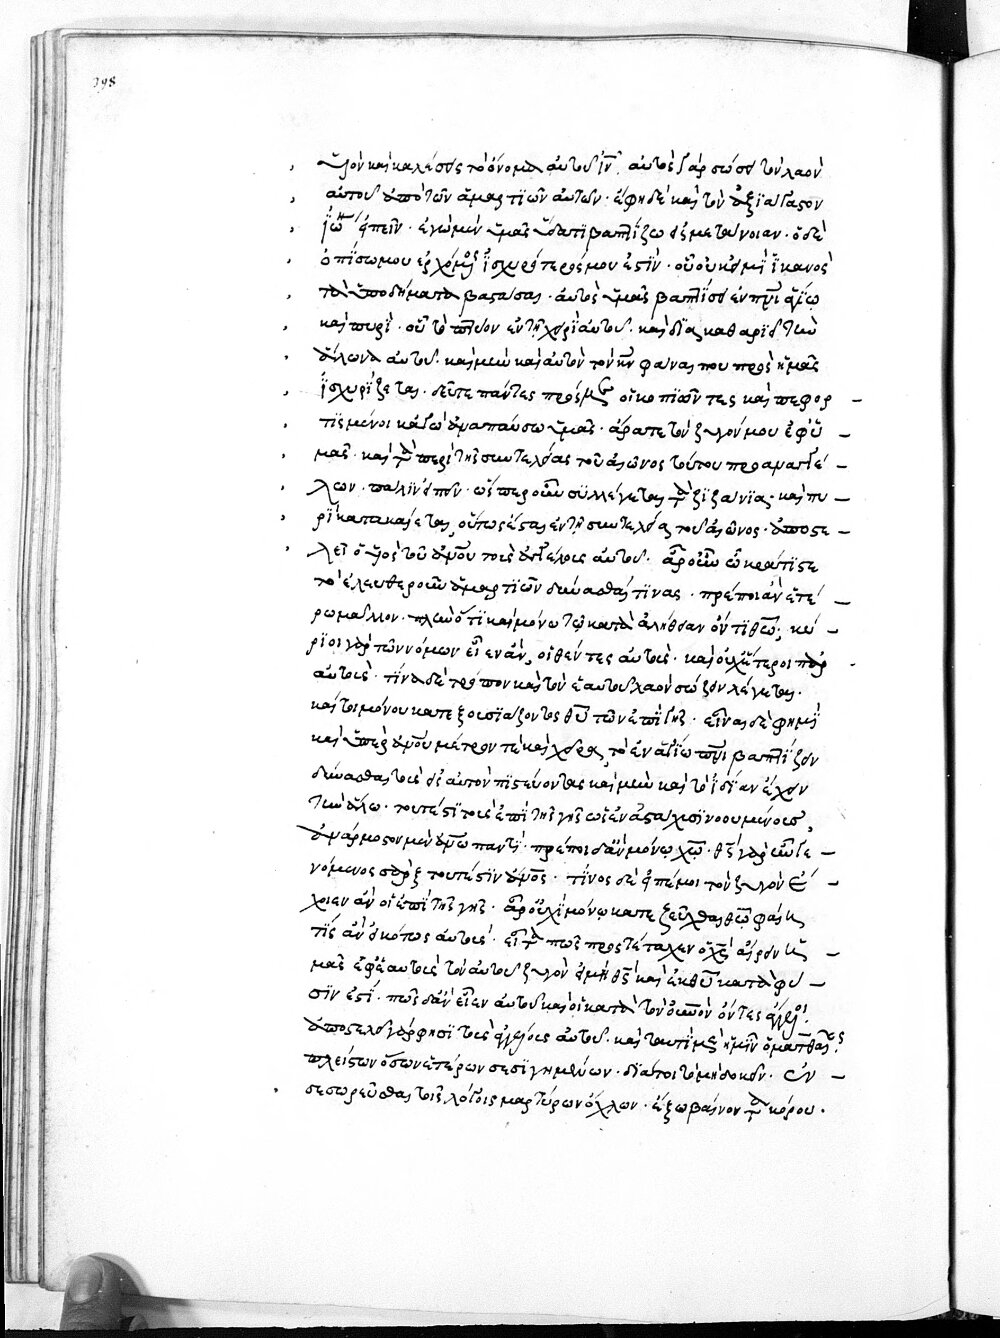 398
υἱὸν καὶ καλέσεις τὸ ὄνομα αὐτοῦ ἰν. αὐτὸς γὰρ σώσει τὸν λαὸν
αὐτοῦ ἀπὸ τῶν ἁμαρτιῶν αὐτῶν · ἔφη δὲ καὶ τὸν
ἐγὼ μὲν ὑμᾶς ὕδατι βαπτίζω εἰς μετάνοιαν · ὁ δὲ
ὀπίσω μου ἐρχόμενος ἰσχυρότερός μου ἐστὶν · οὗ οὐκ εἰμὶ ἱκανὸς
τὰ ὑποδήματα βαστάσαι · αὐτὸς ὑμᾶς βαπτίσει ἐν πνι ἁγίῳ
καὶ πυρί · οὗ τὸ πτύον ἐν τῇ χειρὶ αὐτοῦ · καὶ διακαθαριεῖ τὴν
ἅλωνα αὐτοῦ · καὶ μὴν καὶ αὐτὸν τὸν κν φάναι που πρὸς ἡμᾶς
ἰσχυρίζεται · δεῦτε πάντες πρός με οἱ κοπιῶντες καὶ πεφορ
τισμένοι κἀγὼ ἀναπαύσω ὑμᾶς · ἄρατε τὸν ζυγόν μου ἐφ' ὑ
μᾶς · καὶ τὰ περὶ τῆς συντελείας τοῦ αἰῶνος τούτου πραγματεί
πάλιν εἶπεν · ὥσπερ οὖν συλλέγεται τὰ ζιζάνια · καὶ πυ
ρὶ κατακαίεται, οὕτως ἔσται ἐν τῇ συντελείᾳ τοῦ αἰῶνος · ἀποστε
λεῖ ὁ υἱὸς τοῦ ανου τοὺς ἀγγέλους αὐτοῦ · ἆρ' οὖν ὦ κράτιστε
τὸ ἐλευθεροῦν ἁμαρτιῶν δύνασθαί τινας · πρέποι ἂν ἑτέ
ρῳ μᾶλλον · πλὴν ὅτι καὶ μόνῳ τῷ κατὰ ἀλήθειαν ὄντι θεῷ; κύ
ριοι γὰρ τῶν νόμων εἶεν ἂν, οἱ θέντες αὐτούς · καὶ οὐχ ἕτεροι παρ
αὐτούς · τίνα δὲ τρόπον καὶ τὸν ἑαυτοῦ λαὸν σώζειν λέγεται ·
καίτοι μόνου κατεξουσιάζοντος θυ τῶν ἐπὶ γῆς · εἶναι δέ φημι
καὶ ὑπὲρ ανου μέτρον τε καὶ χεῖρα, τὸ ἐν ἁγίῳ πνι βαπτίζειν
δύνασθαι τοὺς εἰς αὐτὸν πιστεύοντας καὶ μὴν καὶ τὸ ἰδίαν ἔχειν
τὴν ἅλω · τουτέστι τοὺς ἐπὶ τῆς γῆς ὡς ἐν ἀστάχυσι νοουμένους,
ἃ ἁρμόσοι μὲν ανω παντί · πρέποι δ' ἂν μόνῳ χω · θς γὰρ ὢν γέ
γόμενος σὰρξ τουτέστιν ανος · τίνος δὲ
ἂν οἱ ἐπὶ τῆς γῆς · ἆρ' οὐχὶ μόνῳ κατεζεῦχθαι θεῷ φαίη
τις ἂν εἰκότως αὐτούς · εἶτα πῶς προστέταχεν αἴρειν ἡ
μᾶς ἐφ' ἑαυτοὺς τὸν αὐτοῦ ζυγὸν εἰ μὴ θς καὶ ἐκ θυ κατὰ φύ
σιν ἐστί · πῶς δ' ἂν εἶεν αὐτοῦ καὶ οἱ κατὰ τὸν οὐνον ὄντες ἄγγελοι
ἀποστελεῖ γὰρ φησὶ τοὺς ἀγγέλους αὐτοῦ · καὶ ταυτὶ μὲν ἡμῖν
πλείστων ὅσων ἑτέρων σεσιγημένων · διά τοι τὸ μὴ δοκεῖν ·
σεσωρεῦσθαι τοῖς λόγοις μαρτύρων ὄχλον · ἔξω βαίνοντα κόρου ·